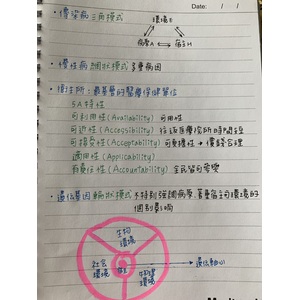 Date: / /
・傳染病 三角模式
環境E
病原A 宿主H
・慢性病 網狀模式 多重病因
・衛生所:最基層的醫療保健單位
5A特性
可利用性(Availability) 可用性
可近性(Accessibility) 往返醫療院所時間短
可接受性(Acceptability) 可負擔性→價錢合理
適用性(Applicability)
可責任性(Accountability) 全民皆可享受
・遺傳基因 輪狀模式 不特別強調病原,著重宿主與環境的
個別影響
生物
環境
社會
環境
宿主
物理
環境
遺傳軸心